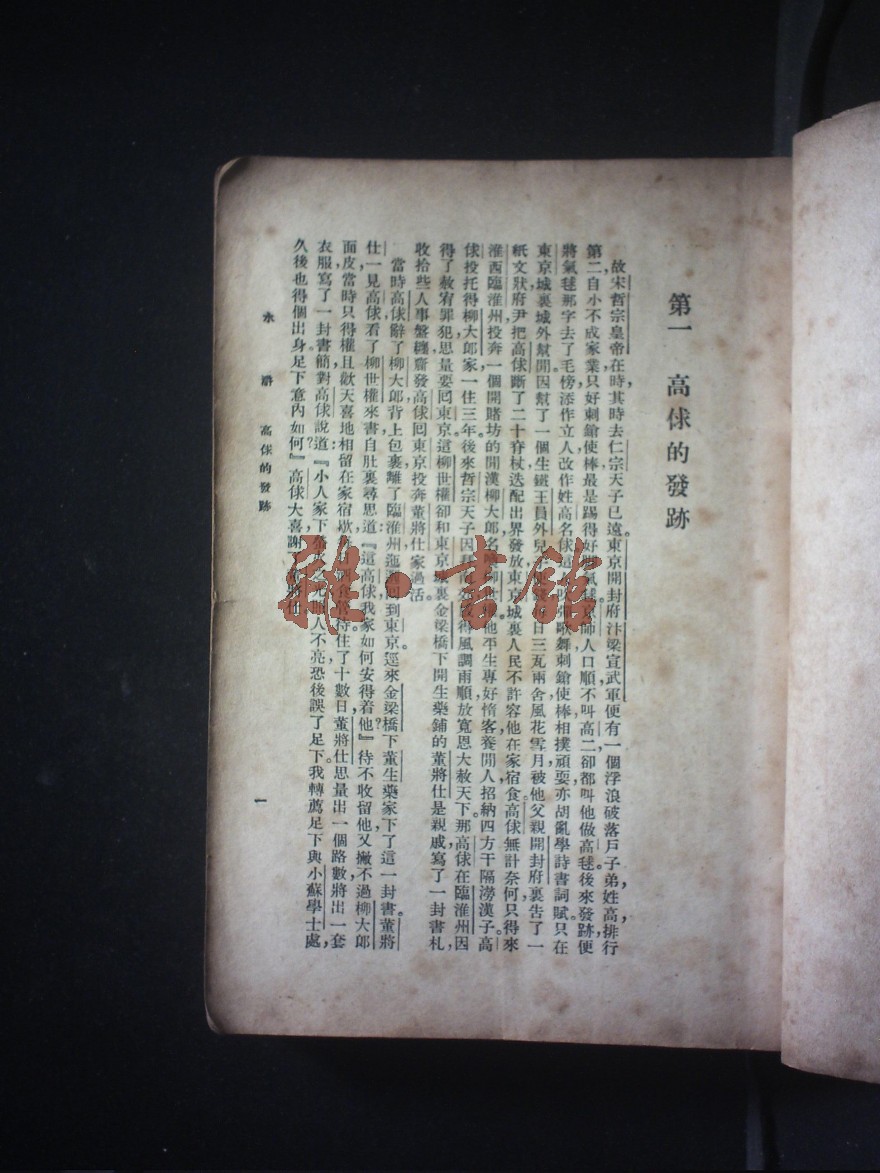 第一 高俅的發跡
故宋哲宗皇帝在時,其時去仁宗天子已遠。東京開封府汴梁宣武軍便有一個浮浪破落戶子弟,姓高,排行
第二,自小不成家業,只好刺鎗使棒,最是踢得好脚氣毬。京師人口順,不叫高二,卻都叫他做高毬。後來發跡,便
將氣毬那字去了毛傍,添作立人,改作姓高,名俅。這 歌舞,刺鎗使棒,相撲頑耍,亦胡亂學詩書詞賦。只在
東京城裏城外幫閒。因幫了一個生鐵王員外兒 日三瓦兩舍,風花雪月,被他父親開封府裏告了一
紙文狀。府尹把高俅斷了二十脊杖,迭配出界發放。東京城裏人民不許容他在家宿食。高俅無計奈何,只得來
淮西臨淮州投奔一個開賭坊的閒漢柳大郎,名 柳世權。他平生專好惜客養閒人,招納四方干隔澇漢子。高
俅投托得柳大郎家,一住三年。後來哲宗天子因拜南 得風調雨順,放寬恩大赦天下。那高俅在臨淮州因
得了赦宥罪犯,思量要回東京。這柳世權卻和東京城裏金梁橋下開生藥鋪的董將仕是親戚,寫了一封書札,
收拾些人事盤纏,齎發高俅回東京投奔董將仕家過活。
當時高俅辭了柳大郎,背上包裹,離了臨淮州,迤邐回到東京,逕來金梁橋下董生藥家下了這一封書。董將
仕一見高俅,看了柳世權來書,自肚裏尋思道:『這高俅我家如何安得着他?』待不收留他,又撇不過柳大郎
面皮,當時只得權且歡天喜地相留在家宿歇, 酒食管待。住了十數日,董將仕思量出一個路數,將出一套
衣服,寫了一封書簡,對高俅說道:『小人家下 之光,照人不亮,恐後誤了足下。我轉薦足下與小蘇學士處,
久後也得個出身。足下意內如何?』高俅大喜,謝了董將仕。
水滸 高俅的發跡 一
雜·書館